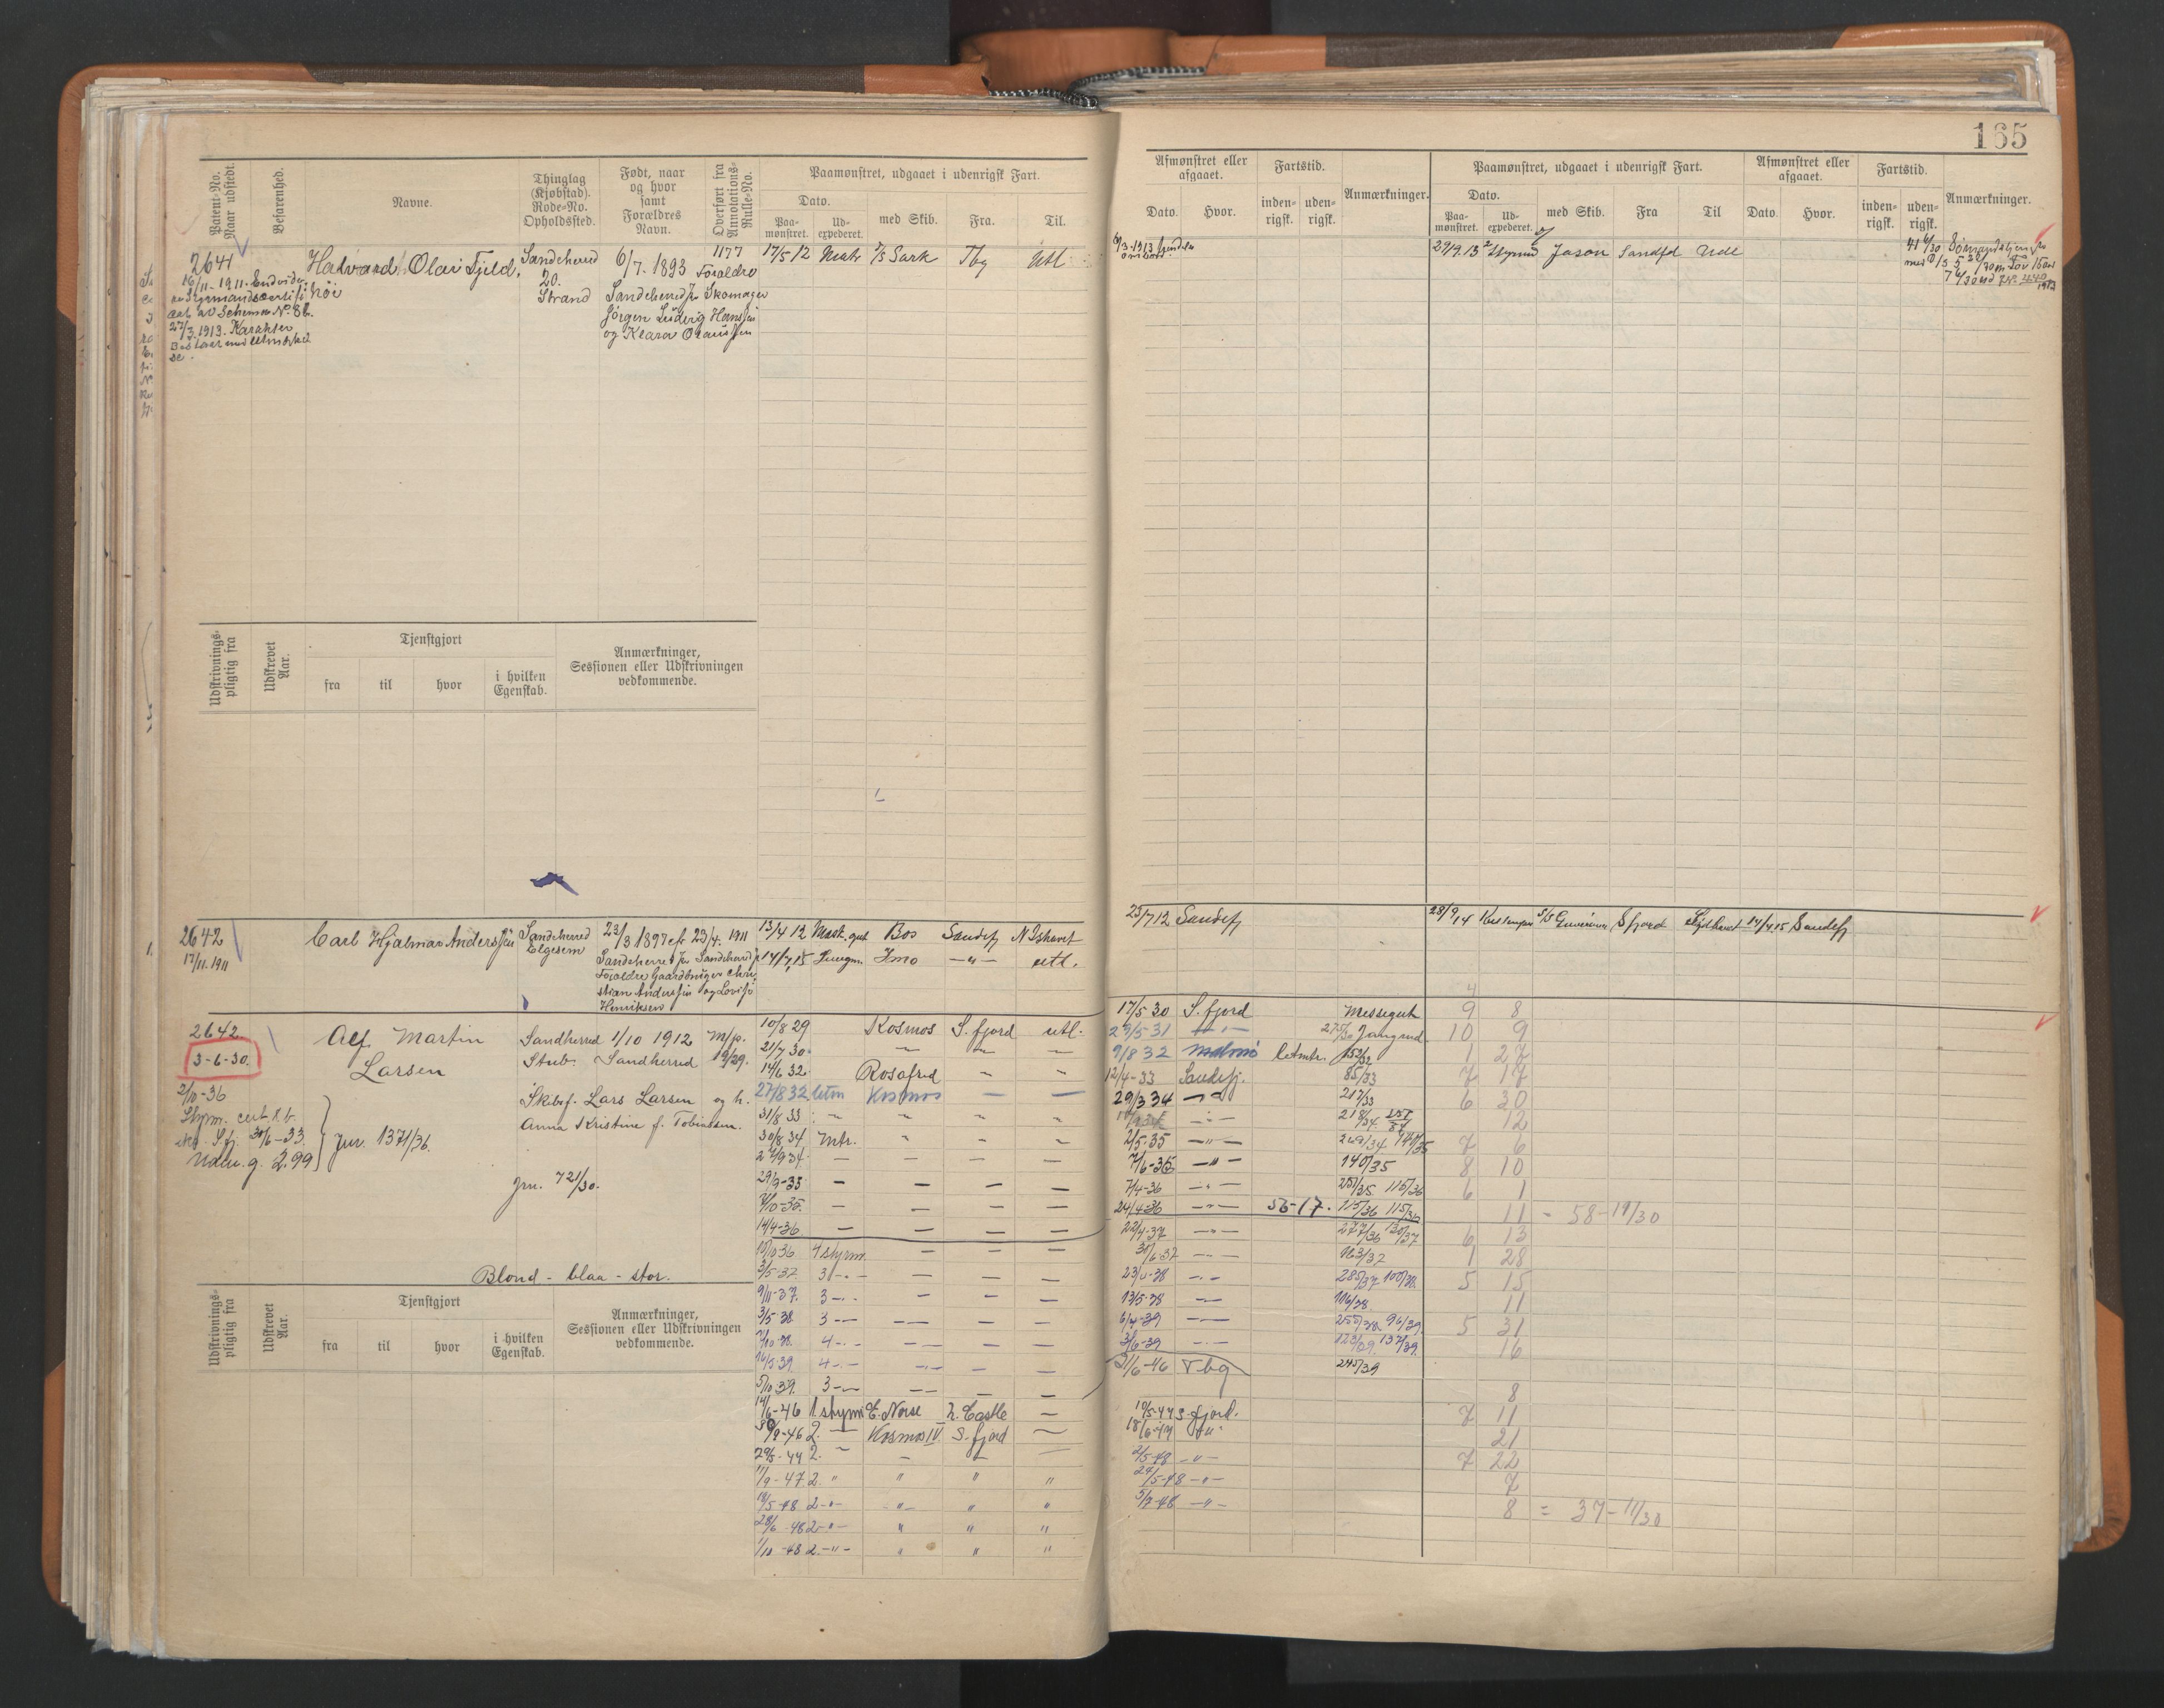 165
Patent-No. Naar udstedt.
Befarenhed.
Navne.
Thinglag (Kjøbstad). Rode-No. Opholdssted.
Født, naar og hvor samt Forældres Navn.
Overført fra Annotations-Rulle-No.
Paamønstret, udgaaet i udenrigsk Fart.
Dato.
Paa-mønstret.
Ud-expederet.
med Skib.
Fra.
Til.
Afmønstret eller afgaaet.
Dato.
Hvor.
Fartstid.
inden-rigsk.
uden-rigsk.
Anmærkninger.
Paamønstret, udgaaet i udenrigsk Fart.
Dato.
Paa-mønstret.
Ud-expederet.
med Skib.
Fra
Til
Afmønstret eller afgaaet.
Dato.
Hvor.
Fartstid.
inden-rigsk.
uden-rigsk.
Anmærkninger.
2641
16/11-1911
27/3.1913. Karakter
Halvard Olai Fjeld,
Sandeherred
20.
Strand
6/7. 1893
Sandeherred
Jörgen Ludvig Hanssen
og Klara Olaussen
1177
Forældre
Skomager
17/5 12 Matr S/S Sark Tbg Utl
29/9.13 Styrm Jason Sandfd Udl
Udskrivnings-pligtig fra
Udskrevet Aar.
Tjenstgjort
fra
til
hvor
i hvilken Egenskab.
Anmærkninger, Sessionen eller Udskrivningen vedkommende.
2642
17/11.1911
Carl Hjalmar Anderssen
Sandeherred
Elgesem
23/3 1897 23/4. 1911
Sandeherred
Forældre Gaardbruger Chri
stian Anderssen og Lovise
Henriksen
13/4 12 Mask. gut Bos Sandefj N Ishavet
14/7.15 Jungm. Jmo —"— utl.
25/7 12 Sandefj
28/9 14 S/S Guvernøren Sfjord Sydhavet 14/4.15 Sandefj
2642
3-6-30.
2/10-36
Styrm. cert.
S.fj. 30/6-33.
Udm. g. 2.99
Jnr. 1371/36.
Alf Martin
Larsen
Sandherred 1/10 1912 m/p.
Stub. Sandherred 19/29.
Skibsf. Lars Larsen og h.
Anna Kristine f. Tobiassen.
Jrn. 721/30.
Blond - blaa - stor.
10/8 29 Kosmos S. fjord utl.
21/7 30. — — —
14/6 32 Rosafred — —
27/8 32 letm Kosmos — —
31/8 33 — — — —
30/8 34 Mtr. — — —
27/9 34 — — — —
29/3-35 — — — —
2/10-35. — — — —
14/4-36. — — — —
10/10 36 4 styrm. — —
3/5-37. 3 -"- — — —
9/11-37. 3 -"- — — —
3/5 38 3 -"- — — —
7/10 38. 4 -"- — — —
16/5 39. 4 -"- — — —
5/10 39. 3 -"- — — —
14/6-46 1 styrm E. Norse N. Castle —
8/9-46 2. — Kosmos IV S. fjord —
29/5-47 2. — — —
11/9-47 2. " " " "
18/5-48 2 -"- -"- " "
28/6-48 2 -"- " " "
1/10-48 2. -"- " " "
17/5 30 S. fjord Messegut 9 8
29/5 31 —"— Jungmd. 10 9
9/8 32 Malmö letmtr. 152/32 1 27
12/4-33 Sandefj. 85/33 7 17
29/3 34 —"— 217/33 6 30
218/34 12
2/5-35 —"— 140/35 7 6
7/6-35 —"— 140/35 8 10
7/4-36 —"— 251/35 115/36 6 1
24/4-36 —"— 56-17. 115/36 115/36 11 = 58-19/30
22/4-37 —"— 277/36 130/37 6 13
30/6-37 —"— 163/37 1 28
23/4-38 —"— 285/37 100/38 5 15
13/5-38 —"— 106/38. 11
6/4-39 —"— 255/38 94/39. 5 31
3/6-39 —"— 123/39. 137/39. 16
3/6-46 Tbg 245/39
8
10/5-47 S. fjord. 7 11
18/6-47 —"— 21
2/5-48 —"— 7 22
24/5-48 —"— 7
5/9-48 —"— 8 = 37-11/30
Udskrivnings-pligtig fra
Udskrevet Aar.
Tjenstgjort
fra
til
hvor
i hvilken Egenskab.
Anmærkninger, Sessionen eller Udskrivningen vedkommende.